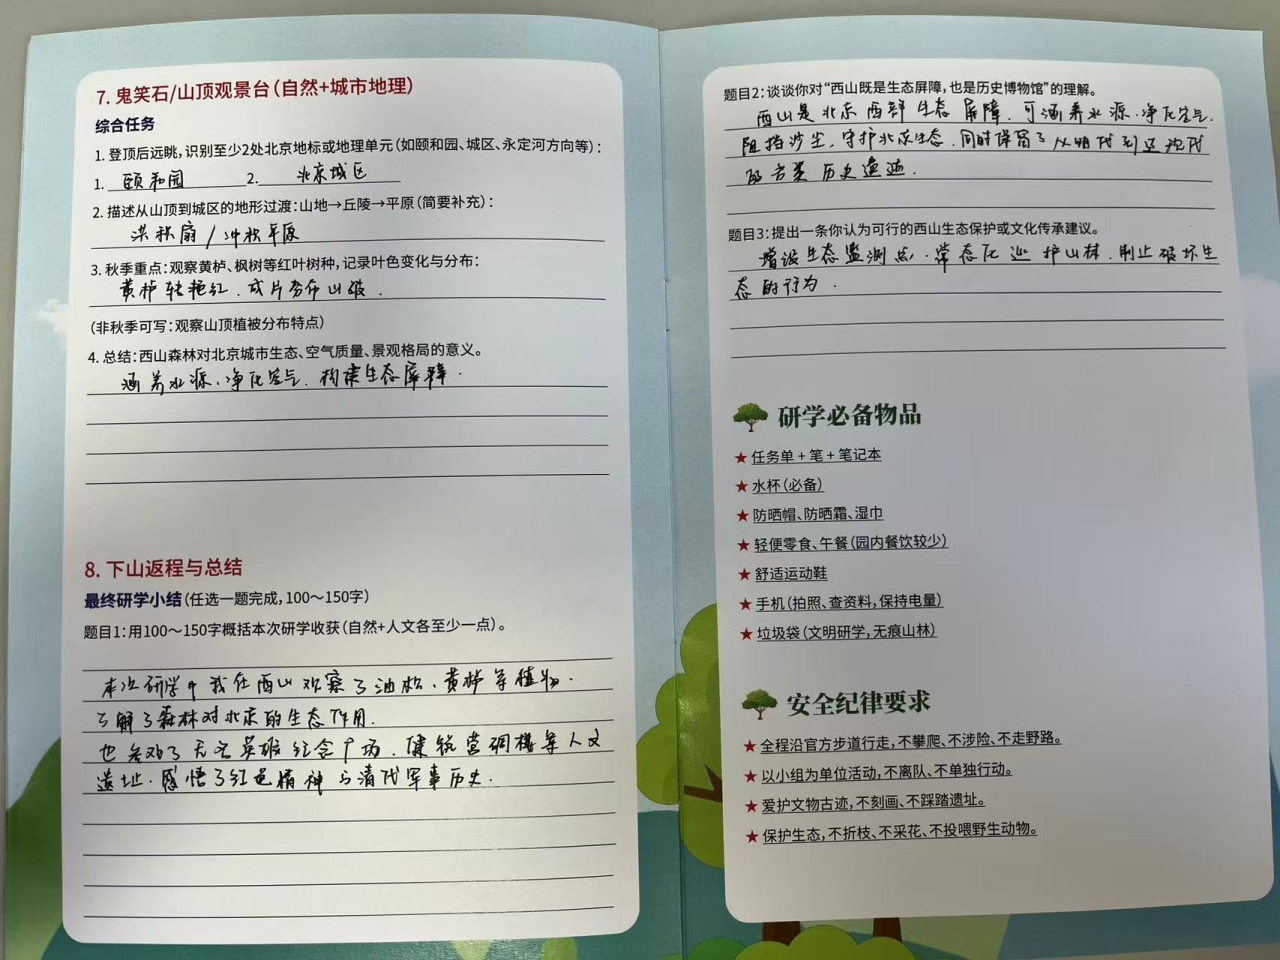 7. 鬼笑石/山顶观景台(自然+城市地理)
综合任务
1. 登顶后远眺,识别至少2处北京地标或地理单元(如颐和园、城区、永定河方向等):
1. 颐和园 2. 北京城区
2. 描述从山顶到城区的地形过渡:山地→丘陵→平原(简要补充):
洪积扇/冲积平原
3. 秋季重点:观察黄栌、枫树等红叶树种,记录叶色变化与分布:
黄栌转艳红、成片分布山坡.
(非秋季可写:观察山顶植被分布特点)
4. 总结:西山森林对北京城市生态、空气质量、景观格局的意义。
涵养水源、净化空气、构建生态屏障.
8. 下山返程与总结
最终研学小结(任选一题完成,100~150字)
题目1:用100~150字概括本次研学收获(自然+人文各至少一点)。
本次研学中我在西山观察了油松、黄栌等植物.
了解了森林对北京的生态作用.
也参观了无名英雄纪念广场、健锐营碉楼等人文
遗址、感悟了红色精神与清代军事历史.
题目2:谈谈你对“西山既是生态屏障,也是历史博物馆”的理解。
西山是北京西部生态屏障、可涵养水源、净化空气.
阻挡沙尘、守护北京生态、同时保留了从明代到近现代
的各类历史遗迹.
题目3:提出一条你认为可行的西山生态保护或文化传承建议。
增设生态监测点、常态化巡护山林、制止破坏生
态的行为.
研学必备物品
★ 任务单 + 笔 + 笔记本
★ 水杯(必备)
★ 防晒帽、防晒霜、湿巾
★ 轻便零食、午餐(园内餐饮较少)
★ 舒适运动鞋
★ 手机(拍照、查资料,保持电量)
★ 垃圾袋(文明研学,无痕山林)
安全纪律要求
★ 全程沿官方步道行走,不攀爬、不涉险、不走野路。
★ 以小组为单位活动,不离队、不单独行动。
★ 爱护文物古迹,不刻画、不踩踏遗址。
★ 保护生态,不折枝、不采花、不投喂野生动物。